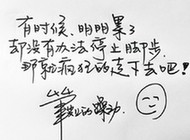 有时候,明明累了
却没有办法停止脚步.
那就疯狂的走下去吧!
的躁动.